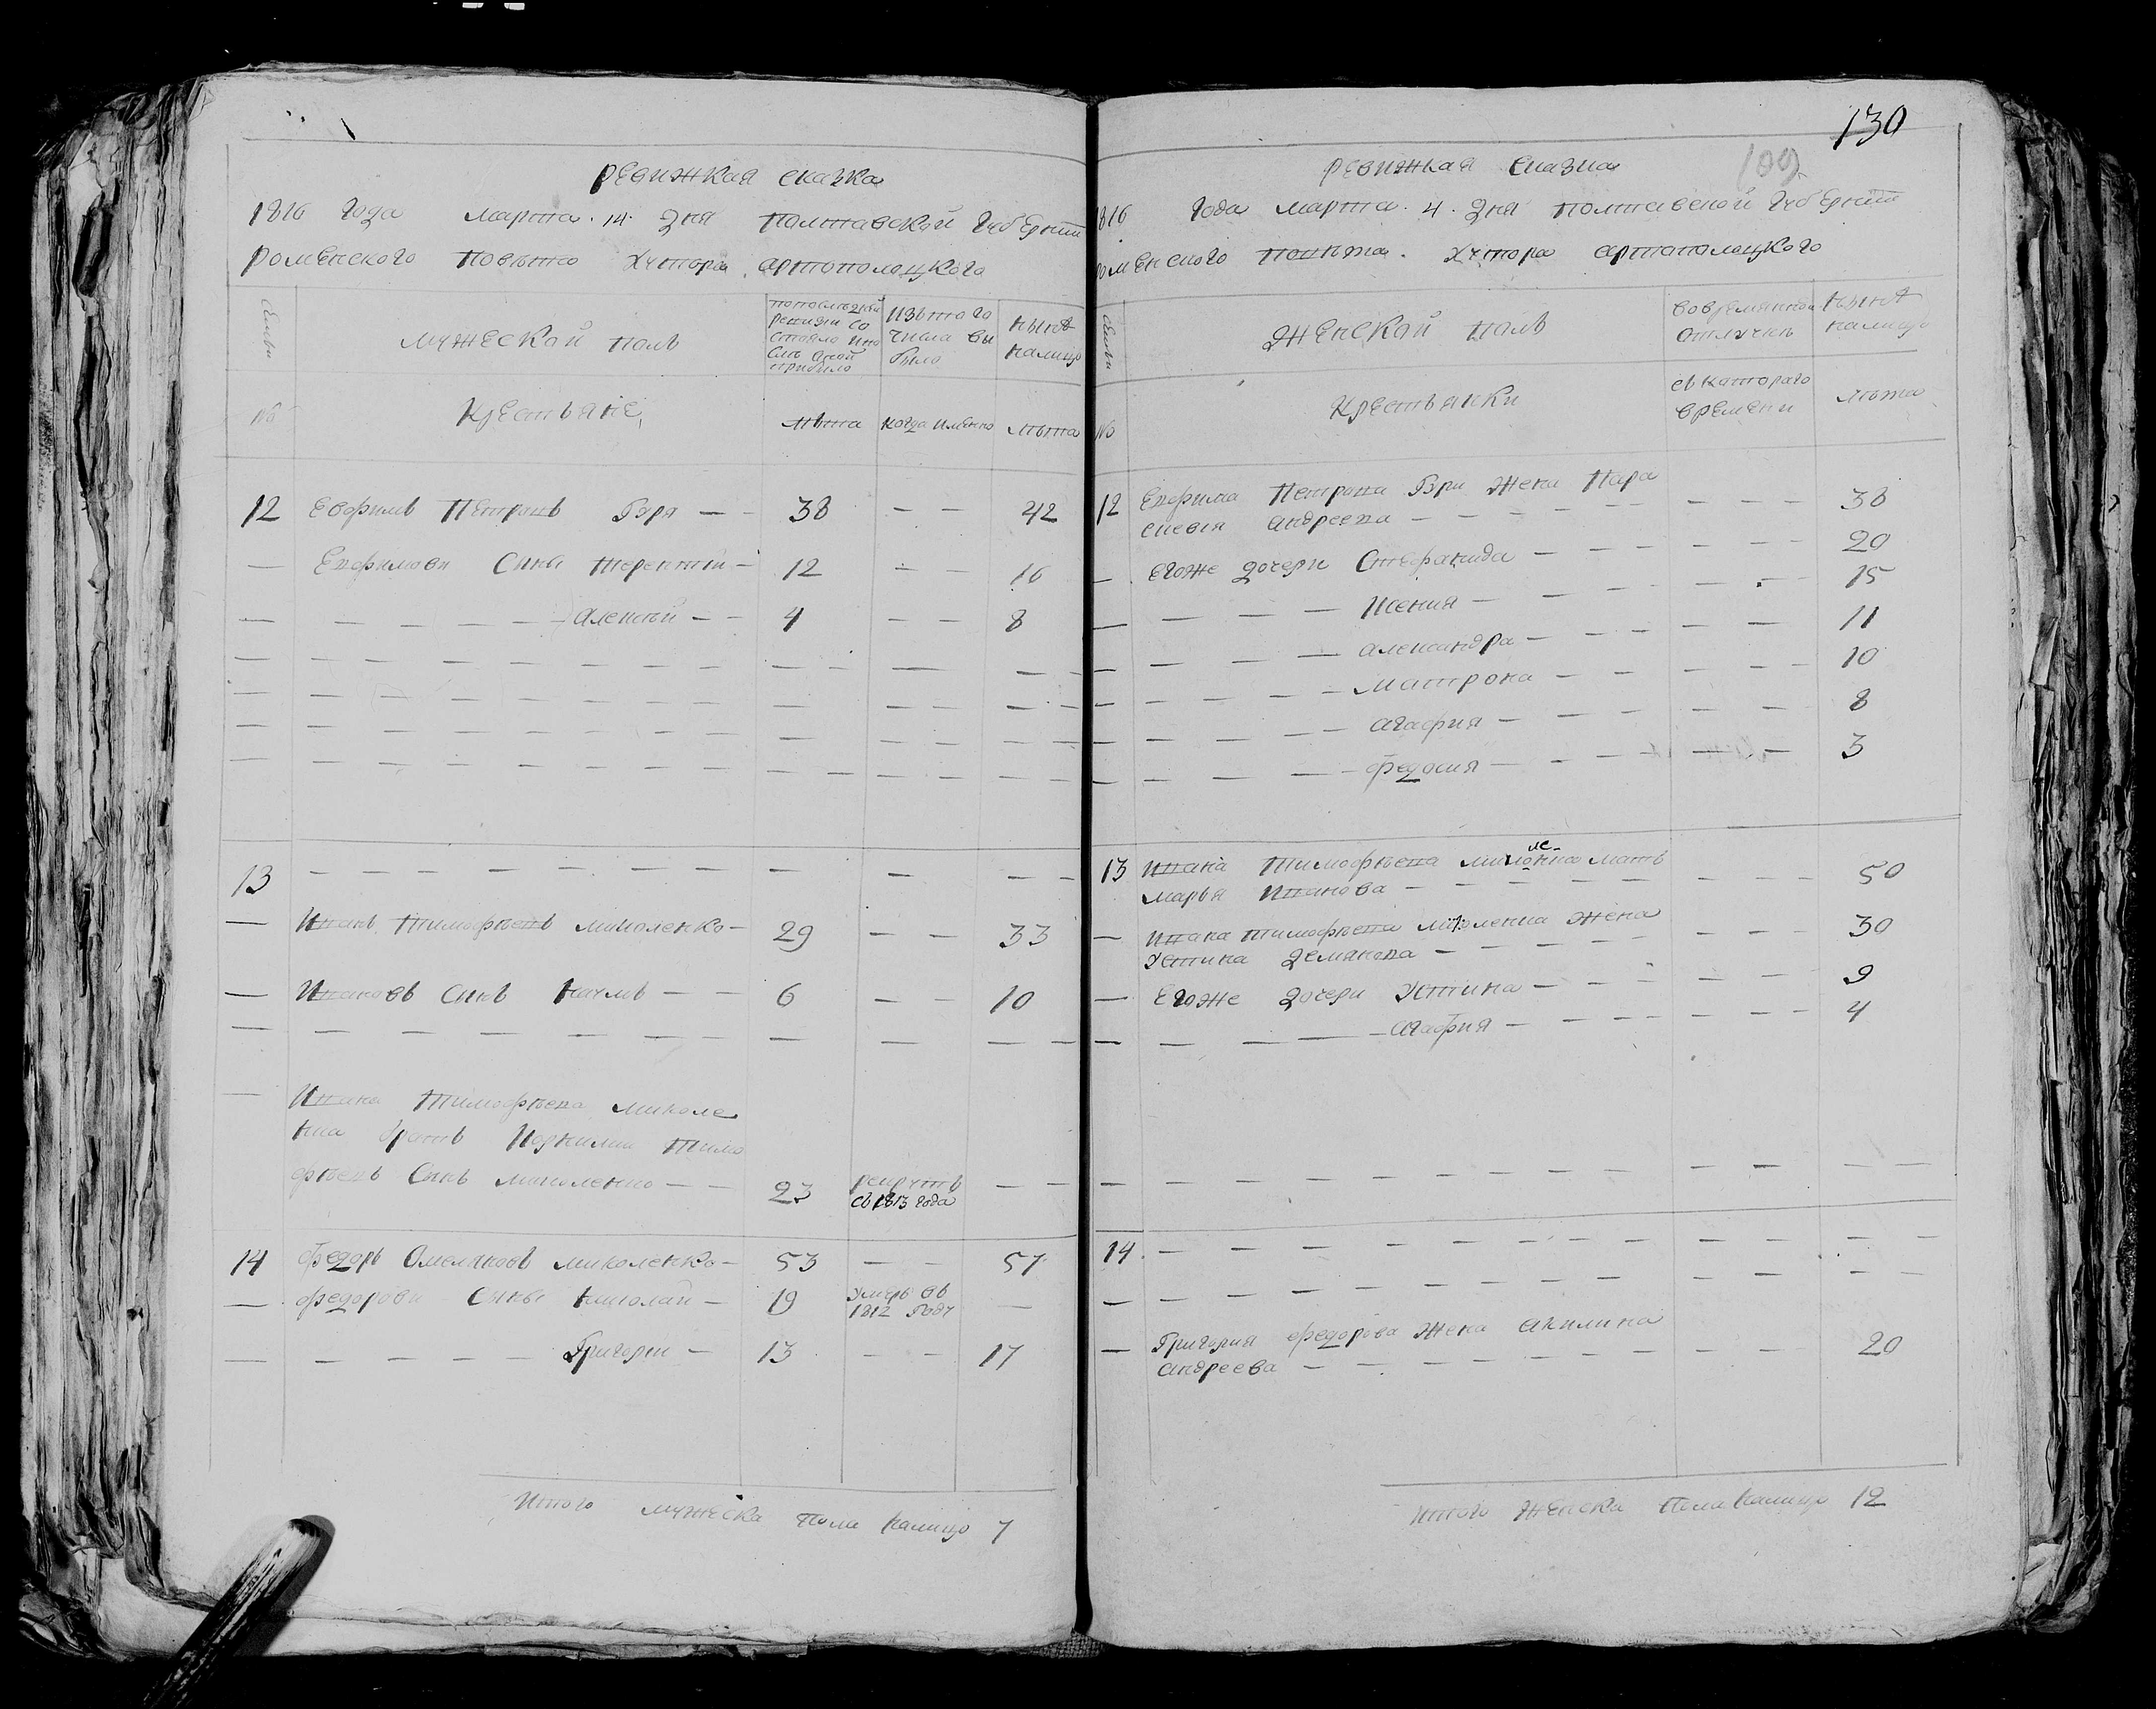 ревижкая сказка
1816 года марта 14 дня полтавской губернии
роменского повѣта хутора артополоцкого
семьи
мужеской полъ
попоследней ревизии со стояло и по слѣ оной прибыло
изъ того числа вы было
нынѣ налицо
№
Крестьяне
лѣта
когда именно
лѣта
12 Евфимъ Петровъ Бзря — — 38 — — 42
— Евфимови сины терентий — 12 — — 16
— — — — — — алексѣй — — 4 — — 8
13 — — — — — — — — — — —
— Иванъ Тимофѣевъ миколенко — 29 — — 33
— Ивановъ синъ наумъ — — 6 — — 10
— Ивана Тимофѣева миколе
нка братъ Корнилий тимо
фѣевъ синъ миколенко — — 23 рекрутъ съ 1813 года — —
14 федоръ Омеляновъ миколенко — 53 — — 57
— федорови сины николай — 19 умеръ въ 1812 году —
— — — — — — Григорий — 13 — — 17
Итого мужеска пола налицо 7
130
109
ревижкая сказка
1816 года марта 4 дня полтавской губернии
роменского повѣта хутора артополоцкого
семьи
женской полъ
во временной отлучкѣ
нынѣ налицо
№
Крестьянки
съ котораго времени
лѣта
12 Евфима Петрова Бзри жена Пара
скевия андреева — — — — — 38
— егоже дочери Стефанида — — — 20
— — — — Ксения — — — 15
— — — — александра — — — 11
— — — — матрона — — — 10
— — — — агафия — — — 8
— — — — федосия — — — 3
13 Ивана Тимофѣева миколенка мать
ле
марья Иванова — — — — — 50
— Ивана тимофѣева миколенка жена
Устина демянова — — — — — 30
— Егоже дочери Устина — — — 9
— — — — агафия — — — 4
14 — — — — — — — — — — —
— Григория федорова жена акилина
андреева — — — — — 20
итого женска пола налицо 12